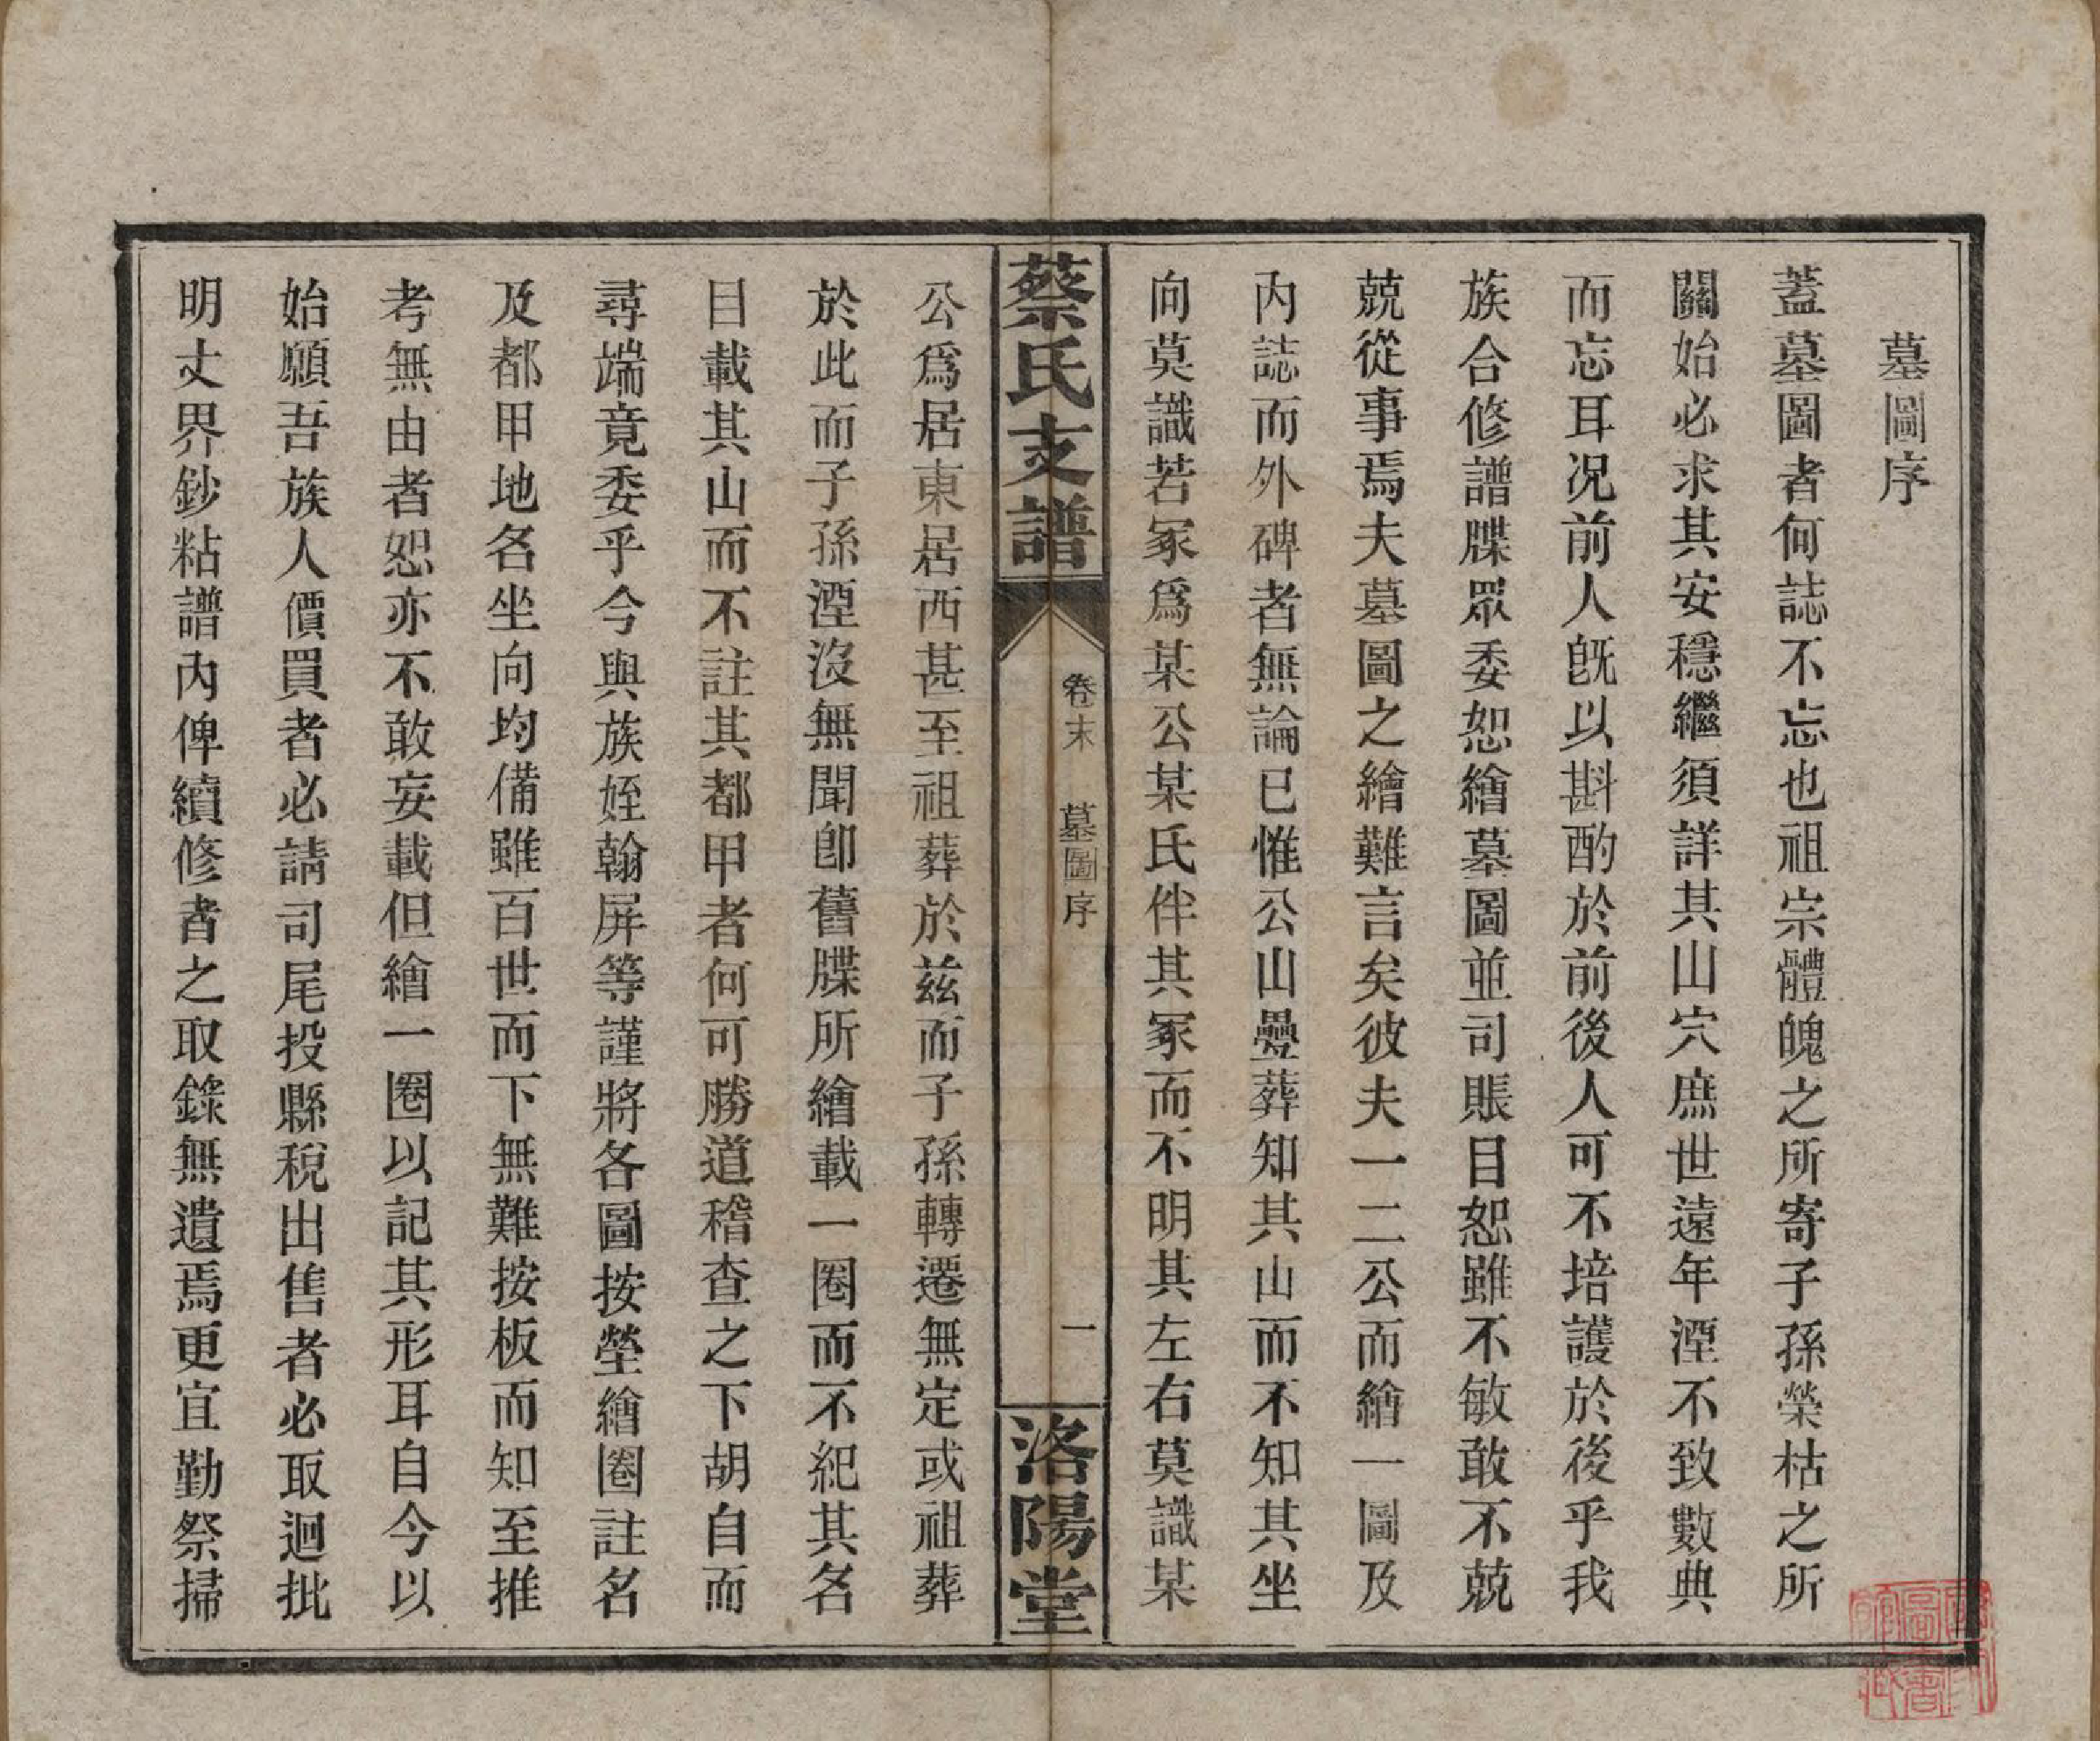 墓圖序
蓋墓圖者何誌不忘也祖宗體魄之所寄子孫榮枯之所
關始必求其安穩繼須詳其山穴庶世遠年湮不致數典
而忘耳况前人旣以斟酌於前後人可不培護於後乎我
族合修譜牒眾委恕繪墓圖並司賬目恕雖不敏敢不兢
兢從事焉夫墓圖之繪難言矣彼夫一二公而繪一圖及
内誌而外碑者無論已惟公山疊葬知其山而不知其坐
向莫識若冢爲某公某氏伴其冢而不明其左右莫識某
蔡氏支譜
卷末
墓圖序
一
洛陽堂
公爲居東居西甚至祖葬於茲而子孫轉遷無定或祖葬
於此而子孫湮沒無聞卽舊牒所繪載一圈而不紀其名
目載其山而不註其都甲者何可勝道稽查之下胡自而
尋端竟委乎今與族姪翰屏等謹將各圖按塋繪圈註名
及都甲地名坐向均備雖百世而下無難按板而知至推
考無由者恕亦不敢妄載但繪一圈以記其形耳自今以
始願吾族人價買者必請司尾投縣稅出售者必取迴批
明丈界鈔粘譜内俾續修者之取錄無遺焉更宜勤祭掃